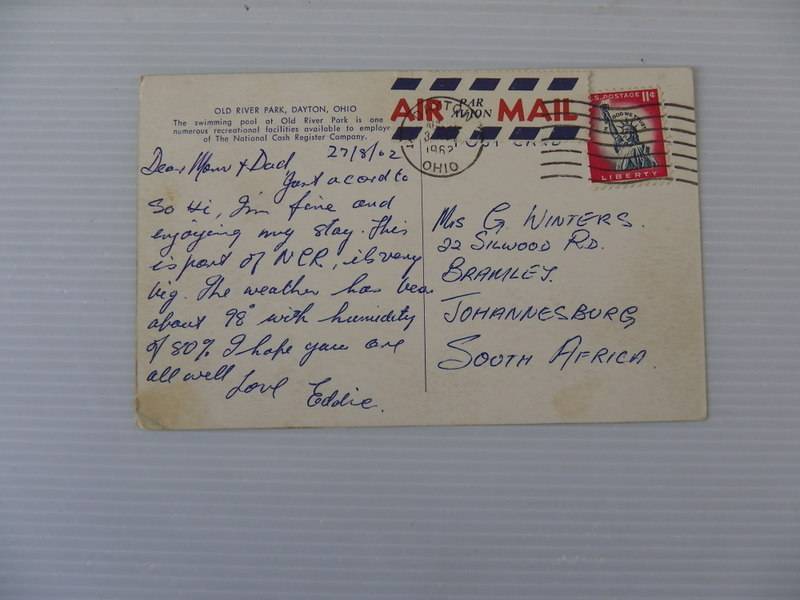 OLD RIVER PARK, DAYTON, OHIO
The swimming pool at Old River Park is one
numerous recreational facilities available to employe
of The National Cash Register Company.
AIR PAR AVION MAIL
POST CARD
1962
OHIO
U.S. POSTAGE 11¢
IN GOD WE TRUST
LIBERTY
27/8/62
Dear Mom & Dad
Just a card to
say Hi, I'm fine and
enjoying my stay. This
is part of NCR, its very
big. The weather has been
about 98° with humidity
of 80% I hope you are
all well Love
Eddie.
Mrs G. WINTERS.
22 SILWOOD RD.
BRAMLEY.
JOHANNESBURG
SOUTH AFRICA.